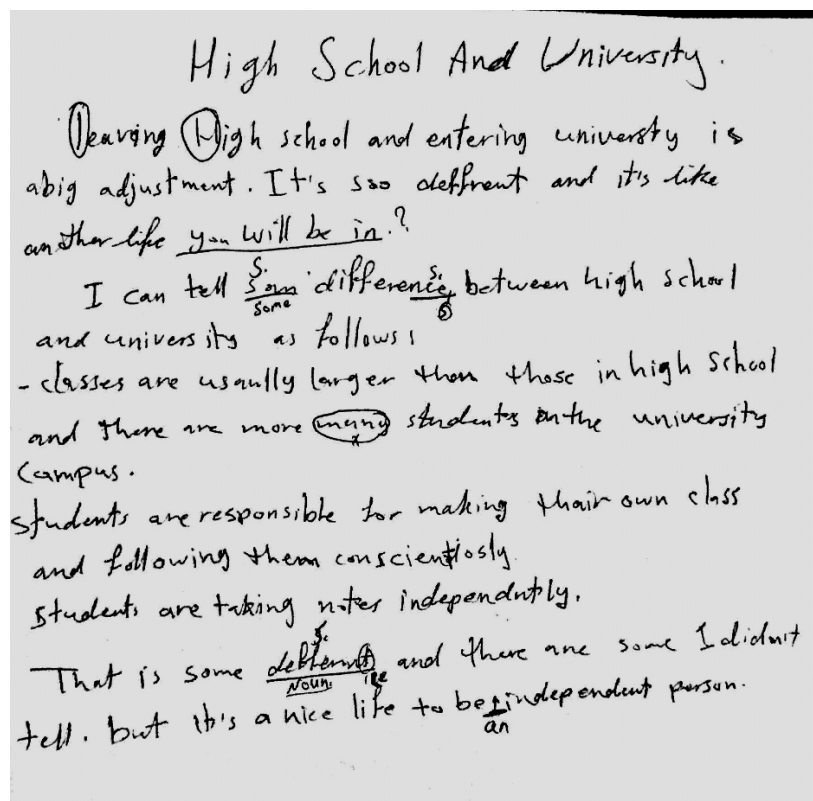 High School And University.
Leaving High school and entering universty is
abig adjustment. It's soo deffrent and it's like
another life you will be in.?
S. S.
I can tell som difference between high school
some s
and university as follows:
- classes are usaully larger than those in high School
and there are more many students in the university
x
Campus.
students are responsible for making thair own class
and following them conscientiosly.
students are taking notes independntly.
s.
That is some deffernt and there are some I didn't
Noun.
tell. but it's a nice life to be independent person.
an